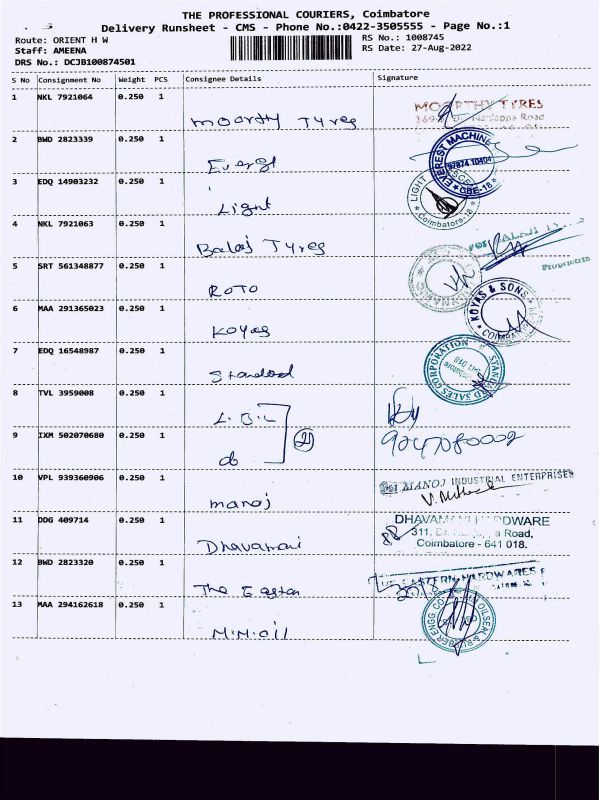 THE PROFESSIONAL COURIERS, Coimbatore
Delivery Runsheet - CMS - Phone No.:0422-3505555 - Page No.:1
Route: ORIENT H W
RS No.: 1008745
Staff: AMEENA
RS Date: 27-Aug-2022
DRS No.: DCJB100874501
S No Consignment No Weight PCS Consignee Details Signature
1 NKL 7921064 0.250 1 Moorthy Tyres
MOORTHY TYRES
2 BWD 2823339 0.250 1 Everest
EVEREST MACHINE
97874 10404
CBE-18
3 EDQ 14903232 0.250 1 Light
LIGHT
Coimbatore-18
4 NKL 7921063 0.250 1 Balaj Tyres
5 SRT 561348877 0.250 1 ROTO
6 MAA 291365023 0.250 1 Koyas
KOYAS & SONS
7 EDQ 16548987 0.250 1 Standard
STANDARD SALES CORPORATION
8 TVL 3959008 0.250 1 L.B.L
9 IXM 502070680 0.250 1 do
2
10 VPL 939360906 0.250 1 manoj
MANOJ INDUSTRIAL ENTERPRISES
11 DDG 409714 0.250 1 Dhavamani
DHAVAMANI HARDWARE
311, Road,
Coimbatore - 641 018.
12 BWD 2823320 0.250 1 The Eastern
EASTERN HARDWARES
13 MAA 294162618 0.250 1 M.M.oil
OILSEAL & RUBBER ENGG. CO